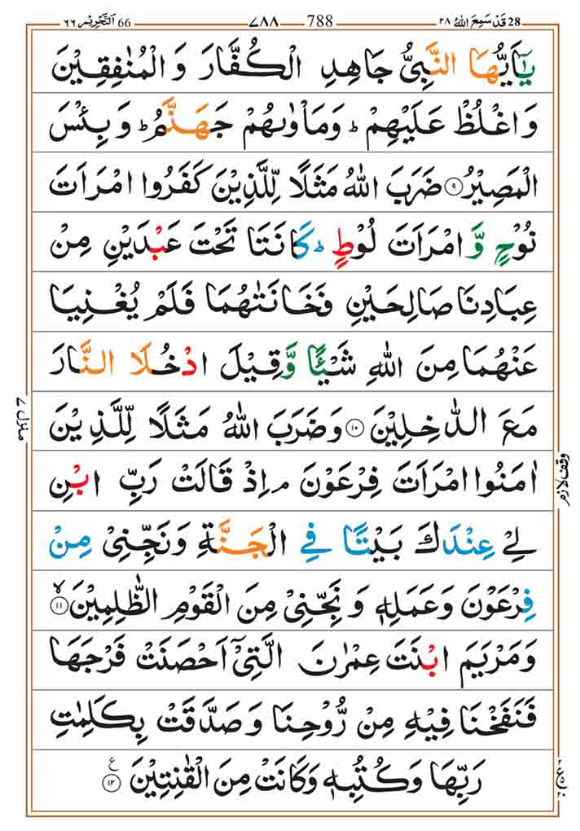 28 قَدْ سَمِعَ اللهُ ٢٨ 788 ٧٨٨ 66 اَلتَّحْرِيْم ٦٦
يٰۤاَيُّهَا النَّبِىُّ جَاهِدِ الْكُفَّارَ وَ الْمُنٰفِقِيْنَ
وَاغْلُظْ عَلَيْهِمْ ؕ وَمَاْوٰىهُمْ جَهَنَّمُ ؕ وَ بِئْسَ
الْمَصِيْرُ ۹ ضَرَبَ اللهُ مَثَلًا لِّلَّذِيْنَ كَفَرُوا امْرَاَتَ
نُوْحٍ وَّ امْرَاَتَ لُوْطٍ ؕ كَانَتَا تَحْتَ عَبْدَيْنِ مِنْ
عِبَادِنَا صَالِحَيْنِ فَخَانَتٰهُمَا فَلَمْ يُغْنِيَا
عَنْهُمَا مِنَ اللهِ شَيْـًٔا وَّقِيْلَ ادْخُلَا النَّارَ
مَعَ الدّٰخِلِيْنَ ۱۰ وَضَرَبَ اللهُ مَثَلًا لِّلَّذِيْنَ
اٰمَنُوا امْرَاَتَ فِرْعَوْنَ ۘ اِذْ قَالَتْ رَبِّ ابْنِ
لِيْ عِنْدَكَ بَيْتًا فِي الْجَنَّةِ وَنَجِّنِيْ مِنْ
فِرْعَوْنَ وَعَمَلِهٖ وَنَجِّنِيْ مِنَ الْقَوْمِ الظّٰلِمِيْنَ ۙ ۱۱
وَمَرْيَمَ ابْنَتَ عِمْرٰنَ الَّتِيْۤ اَحْصَنَتْ فَرْجَهَا
فَنَفَخْنَا فِيْهِ مِنْ رُّوْحِنَا وَصَدَّقَتْ بِكَلِمٰتِ
رَبِّهَا وَكُتُبِهٖ وَكَانَتْ مِنَ الْقٰنِتِيْنَ ۱۲ ع
منزل ٧
وقف لازم